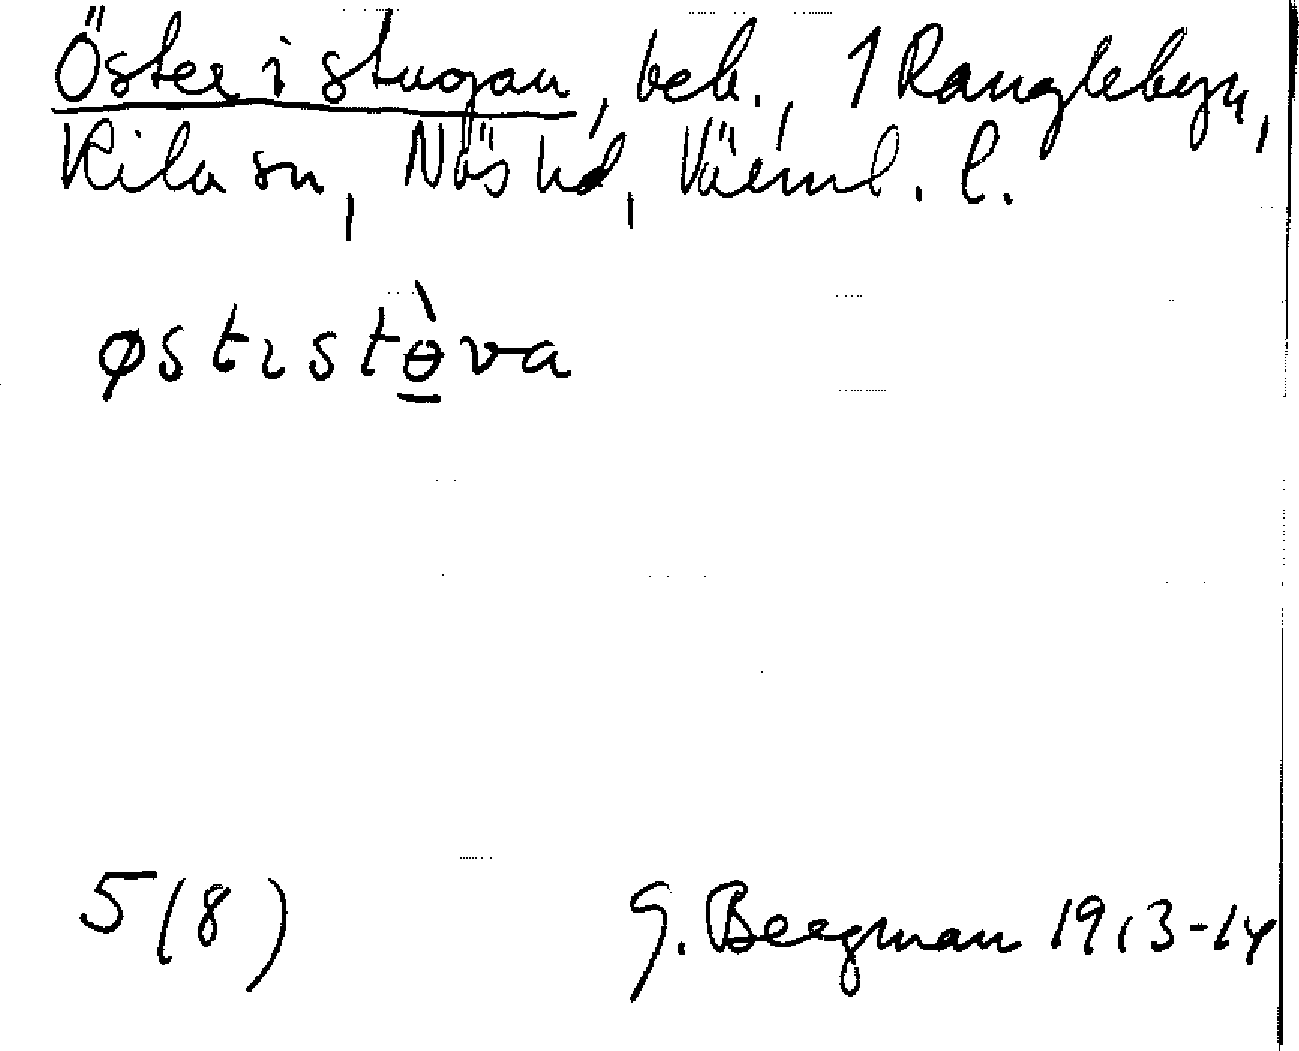 Öster i stugan, beb., 1 Ranglebyn,
Kila sn, Näs hd, Värml. l.
østɩstɵ̲̀va
5(8) G. Bergman 1913-14